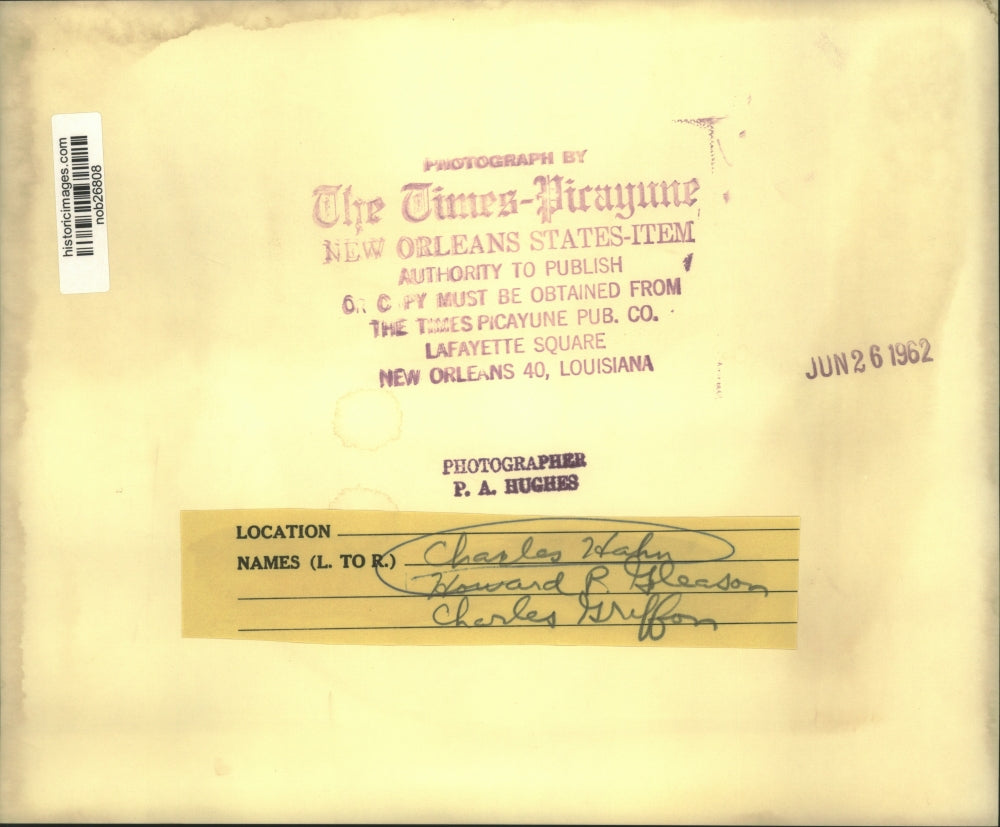 historicimages.com
nob26808
PHOTOGRAPH BY
The Times-Picayune
NEW ORLEANS STATES-ITEM
AUTHORITY TO PUBLISH
OR C PY MUST BE OBTAINED FROM
THE TIMES PICAYUNE PUB. CO.
LAFAYETTE SQUARE
NEW ORLEANS 40, LOUISIANA
JUN 26 1962
PHOTOGRAPHER
P. A. HUGHES
LOCATION
NAMES (L. TO R.) Charles Hahn
Howard R Gleason
Charles Griffon